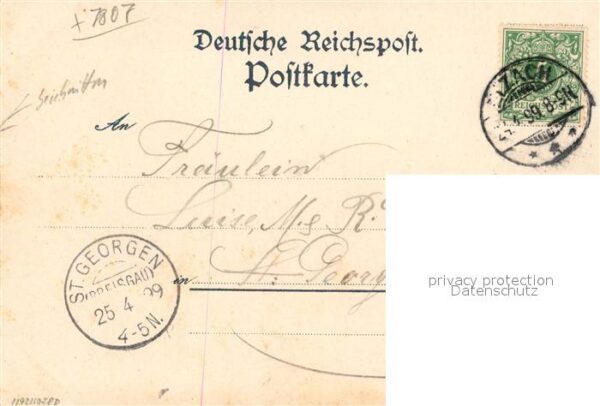 + 7807
Deutsche Reichspost.
Postkarte.
ELZACH
8-9N
REICHSPOST
An
Fräulein
Luise
in St. Georg
ST. GEORGEN
(BREISGAU)
25 4 99
4-5N.
privacy protection
Datenschutz